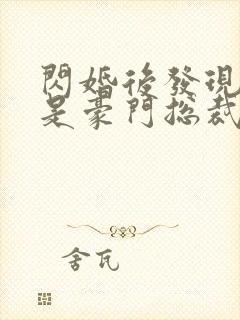 閃婚後發現
是豪門總裁
舍瓦